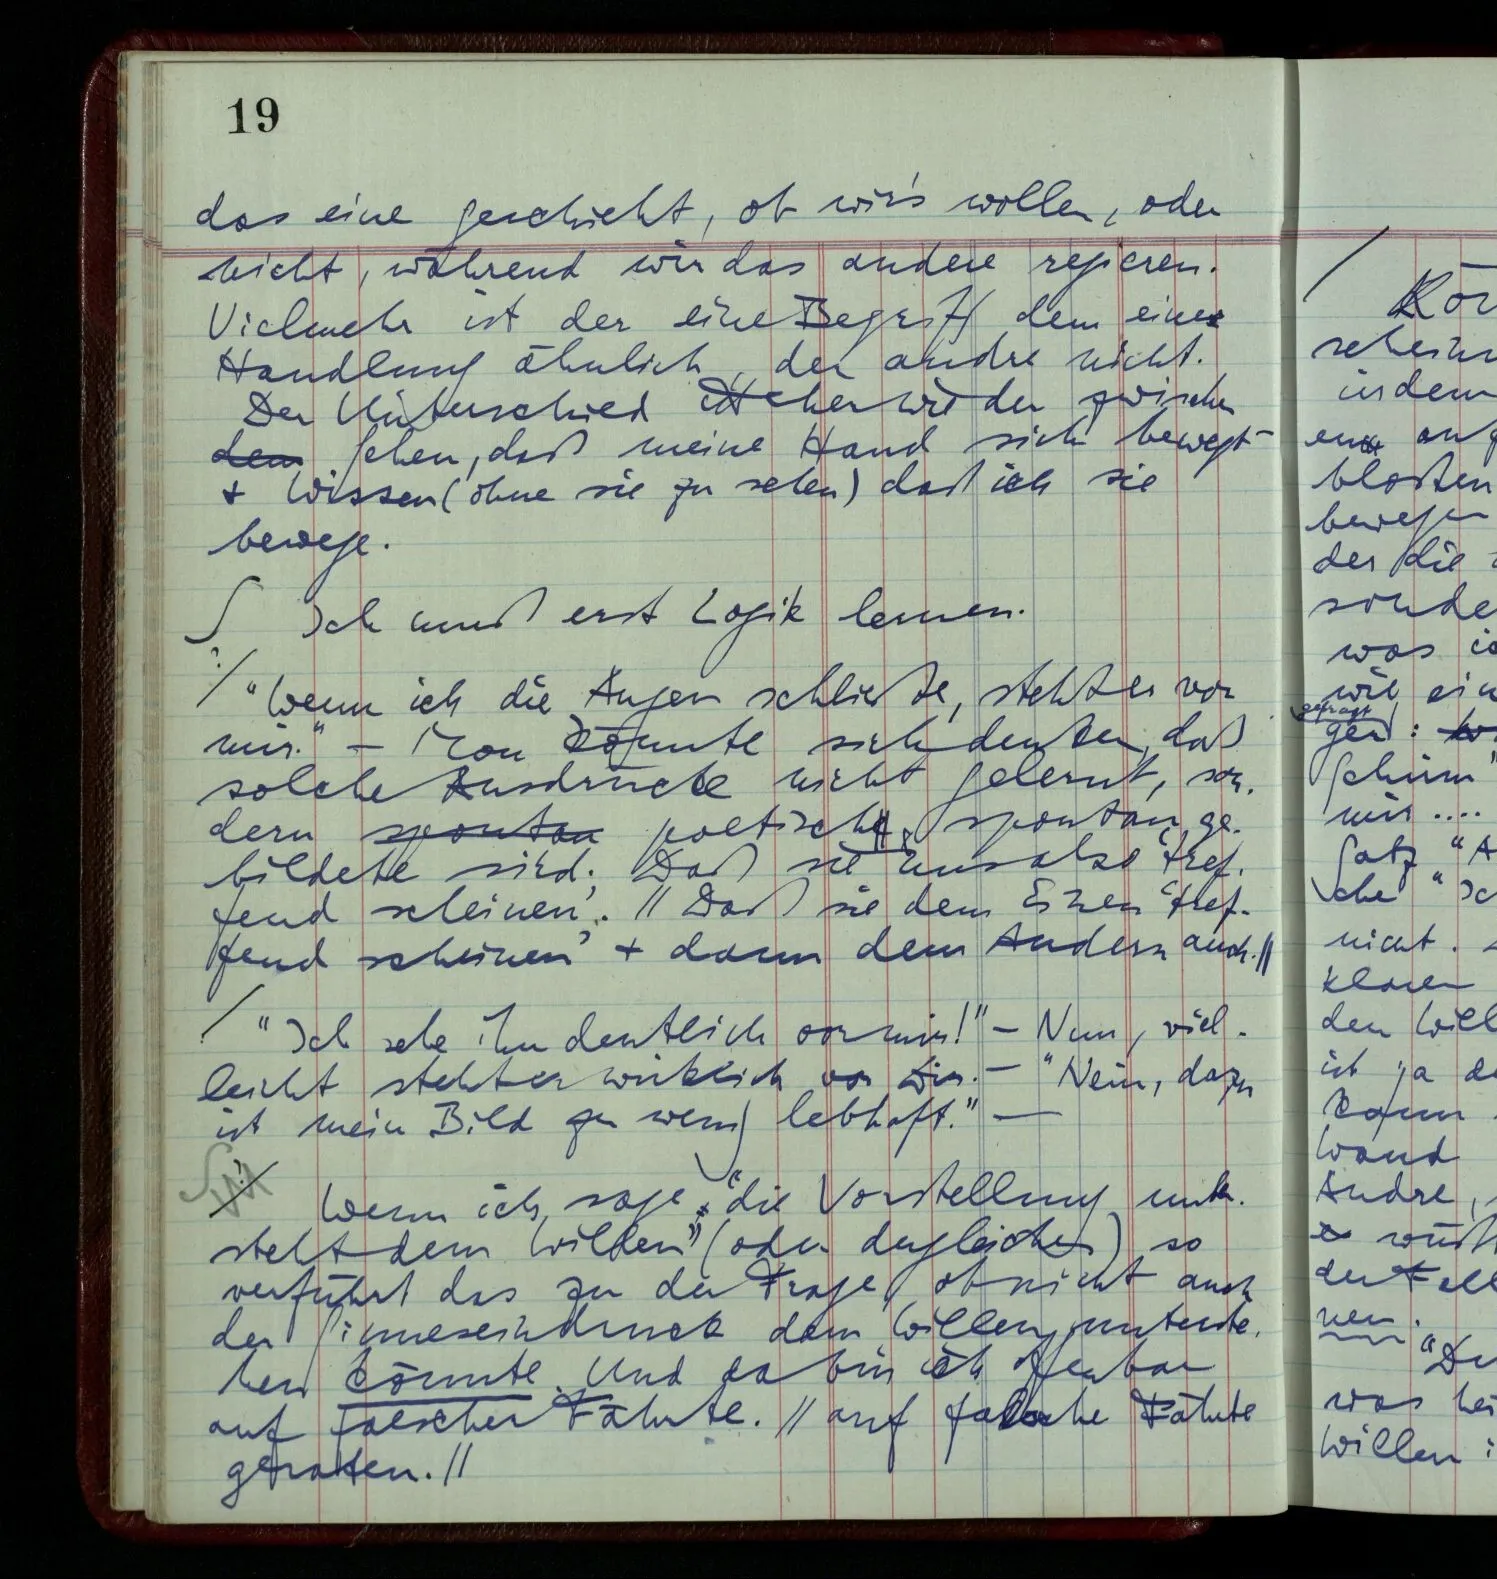 19
das eine geschieht, ob wir's wollen, oder
nicht, während wir das andere regieren.
Vielmehr ist der eine Begriff dem einer
Handlung ähnlich, der andre nicht.
Der Unterschied eher wieder zwischen
dem Sehen, daß meine Hand sich bewegt
+ Wissen (ohne sie zu sehen) daß ich sie
bewege.
∫ Ich muß erst Logik lernen.
?/ "Wenn ich die Augen schließe, steht er vor
mir." – Man könnte sich denken, daß
solche Ausdrücke nicht gelernt, son-
dern spontan poetisch, spontan ge-
bildete sind. Daß sie uns also 'tref-
fend scheinen'. // Daß sie dem Einen 'tref-
fend scheinen' + dann dem Andern auch. //
/ "Ich sehe ihn deutlich vor mir!" – Nun, viel-
leicht steht er wirklich vor Dir. – "Nein, dazu
ist mein Bild zu wenig lebhaft." –
Wenn ich sage, "die Vorstellung unter-
steht dem Willen" (oder dergleichen) so
verführt das zu der Frage, ob nicht auch
der Sinneseindruck dem Willen unterste-
hen könnte. Und da bin ich offenbar
auf falscher Fährte. // auf falsche Fährte
geraten. //
/ Kör
schein
indem
auf
bloßen
bewegen
der die
sonde
was ic
wie ein
gefragt
gen:
Schirm"
mir ....
Satz "A
che "Ic
nicht.
klaren
den Will
ist ja de
kann
Wand
Andre,
wüßt
der Fall
nen.
"De
was hei
Willen